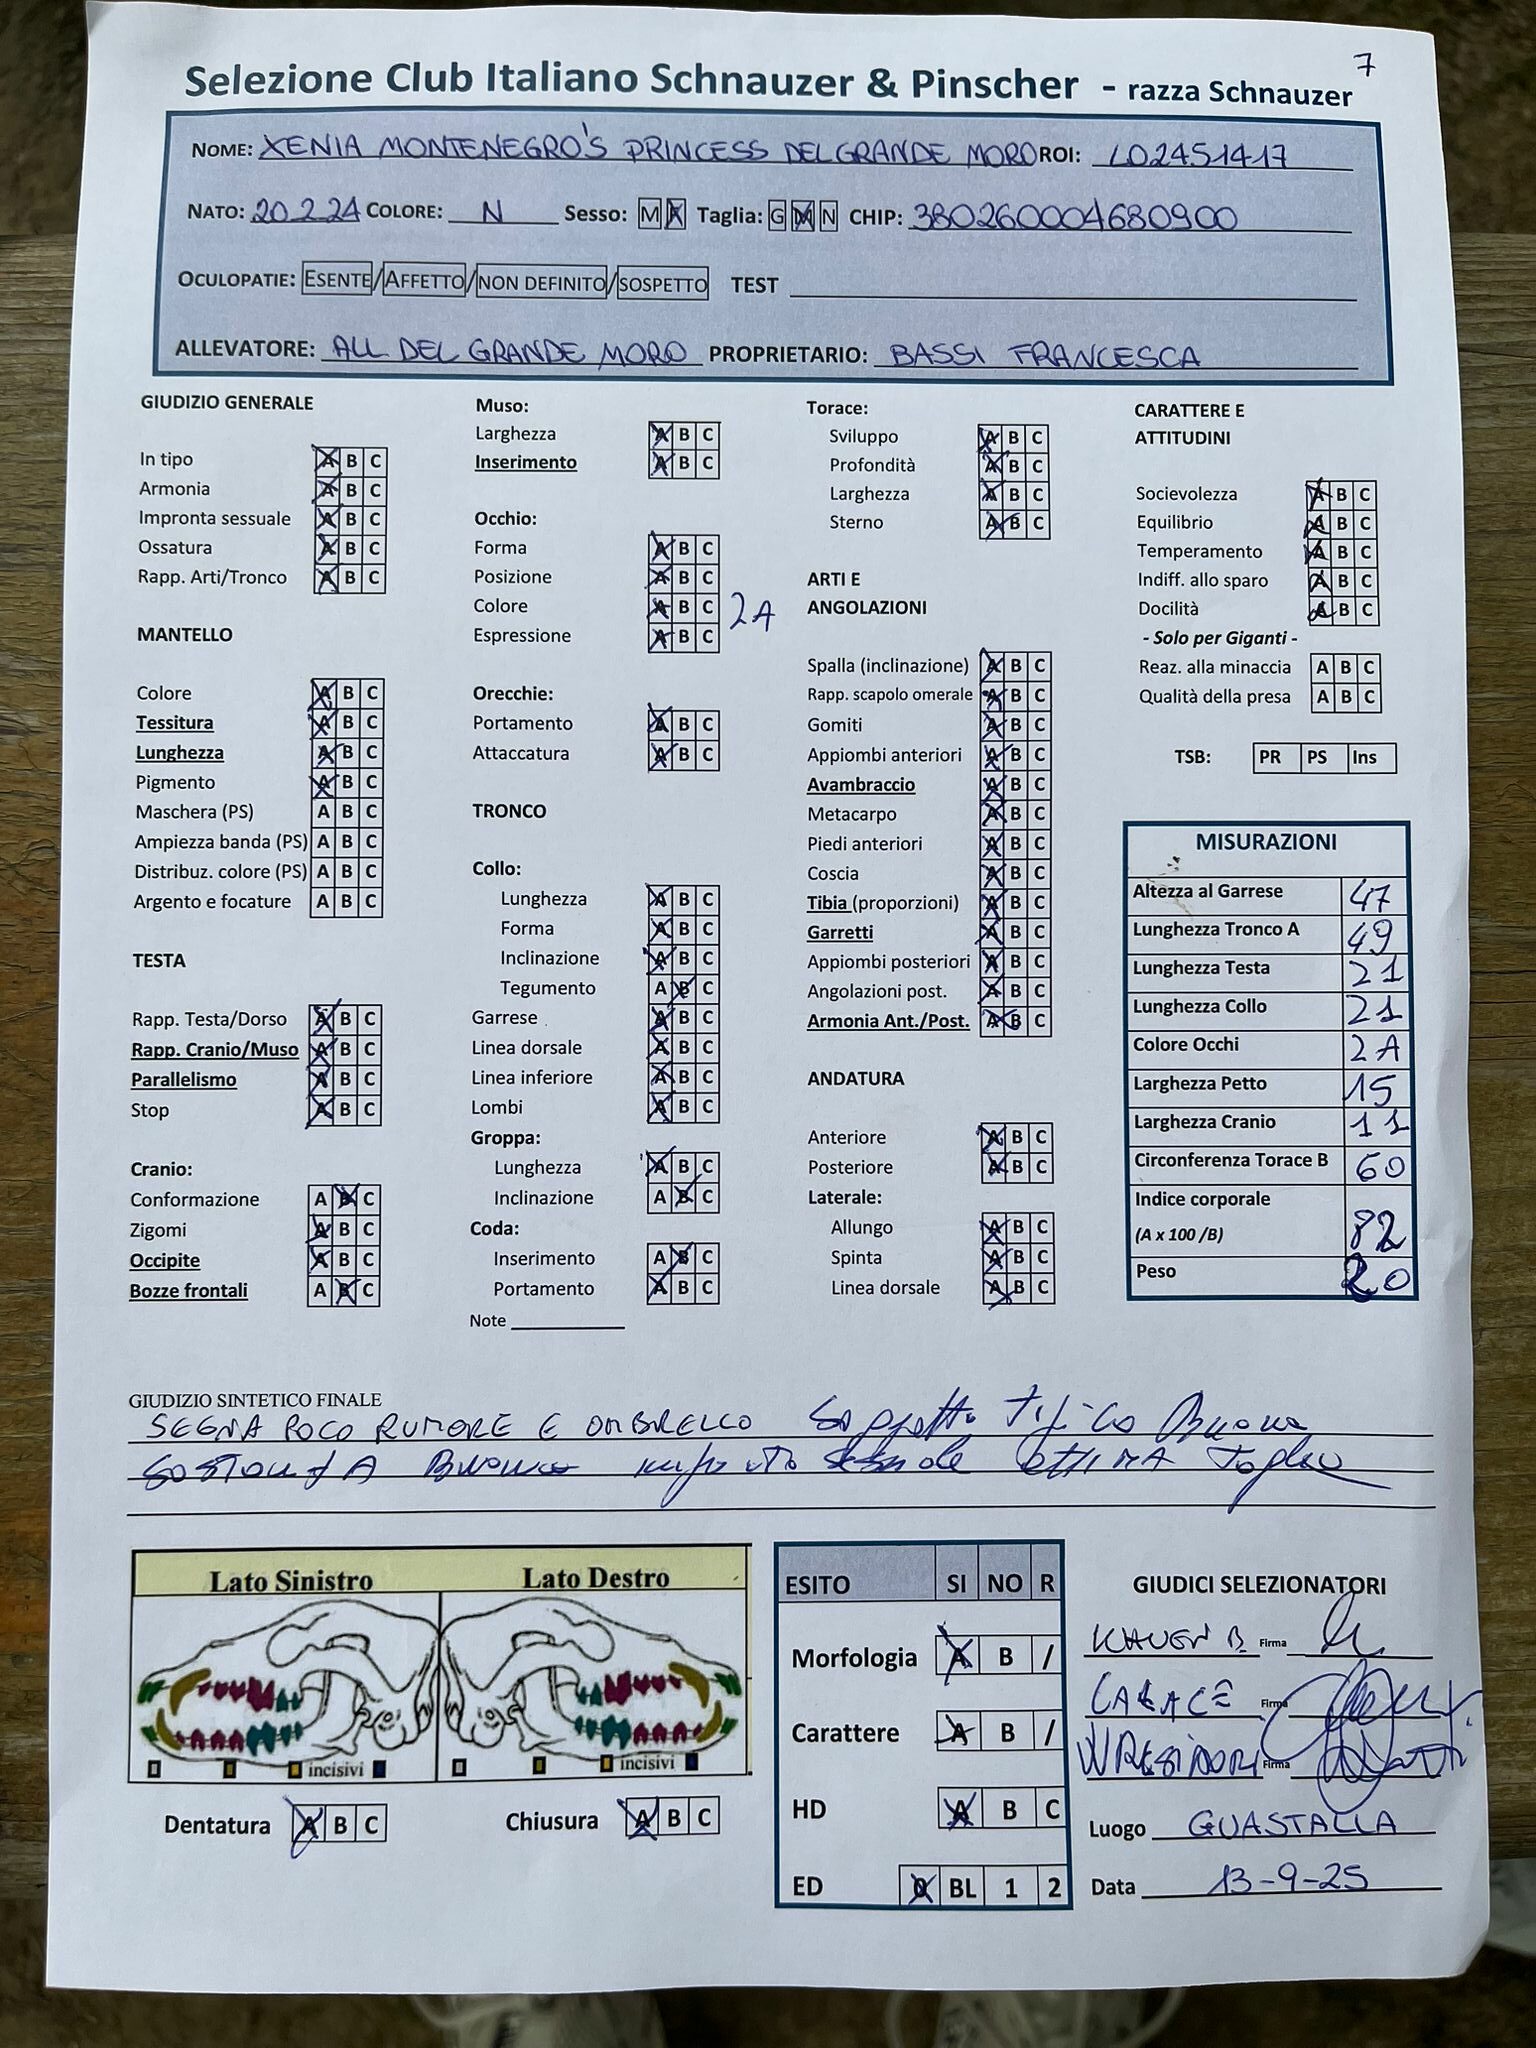 7
Selezione Club Italiano Schnauzer & Pinscher - razza Schnauzer
NOME: XENIA MONTENEGRO'S PRINCESS DEL GRANDE MORO ROI: LO2451417
NATO: 20.2.24 COLORE: N Sesso: M Taglia: G M N CHIP: 380260004680900
OCULOPATIE: ESENTE/AFFETTO/NON DEFINITO/SOSPETTO TEST
ALLEVATORE: ALL. DEL GRANDE MORO PROPRIETARIO: BASSI FRANCESCA
GIUDIZIO GENERALE
In tipo A B C
Armonia A B C
Impronta sessuale A B C
Ossatura A B C
Rapp. Arti/Tronco A B C
MANTELLO
Colore A B C
Tessitura A B C
Lunghezza A B C
Pigmento A B C
Maschera (PS) A B C
Ampiezza banda (PS) A B C
Distribuz. colore (PS) A B C
Argento e focature A B C
TESTA
Rapp. Testa/Dorso A B C
Rapp. Cranio/Muso A B C
Parallelismo A B C
Stop A B C
Cranio:
Conformazione A B C
Zigomi A B C
Occipite A B C
Bozze frontali A B C
Muso:
Larghezza A B C
Inserimento A B C
Occhio:
Forma A B C
Posizione A B C
Colore A B C 2A
Espressione A B C
Orecchie:
Portamento A B C
Attaccatura A B C
TRONCO
Collo:
Lunghezza A B C
Forma A B C
Inclinazione A B C
Tegumento A B C
Garrese A B C
Linea dorsale A B C
Linea inferiore A B C
Lombi A B C
Groppa:
Lunghezza A B C
Inclinazione A B C
Coda:
Inserimento A B C
Portamento A B C
Note
Torace:
Sviluppo A B C
Profondità A B C
Larghezza A B C
Sterno A B C
ARTI E
ANGOLAZIONI
Spalla (inclinazione) A B C
Rapp. scapolo omerale A B C
Gomiti A B C
Appiombi anteriori A B C
Avambraccio A B C
Metacarpo A B C
Piedi anteriori A B C
Coscia A B C
Tibia (proporzioni) A B C
Garretti A B C
Appiombi posteriori A B C
Angolazioni post. A B C
Armonia Ant./Post. A B C
ANDATURA
Anteriore A B C
Posteriore A B C
Laterale:
Allungo A B C
Spinta A B C
Linea dorsale A B C
CARATTERE E
ATTITUDINI
Socievolezza A B C
Equilibrio A B C
Temperamento A B C
Indiff. allo sparo A B C
Docilità A B C
- Solo per Giganti -
Reaz. alla minaccia A B C
Qualità della presa A B C
TSB: PR PS Ins
MISURAZIONI
Altezza al Garrese 47
Lunghezza Tronco A 49
Lunghezza Testa 21
Lunghezza Collo 21
Colore Occhi 2A
Larghezza Petto 15
Larghezza Cranio 11
Circonferenza Torace B 60
Indice corporale
(A x 100 /B) 82
Peso 20
GIUDIZIO SINTETICO FINALE
SEGNA POCO RUMORE E OMBRELLO Soggetto Tipico Buona
SOSTANZA Buona sessuale OTTIMA Taglia
Lato Sinistro Lato Destro
incisivi incisivi
Dentatura A B C Chiusura A B C
ESITO SI NO R
Morfologia A B /
Carattere A B /
HD A B C
ED 0 BL 1 2
GIUDICI SELEZIONATORI
Firma
Firma
Firma
Luogo GUASTALLA
Data 13-9-25